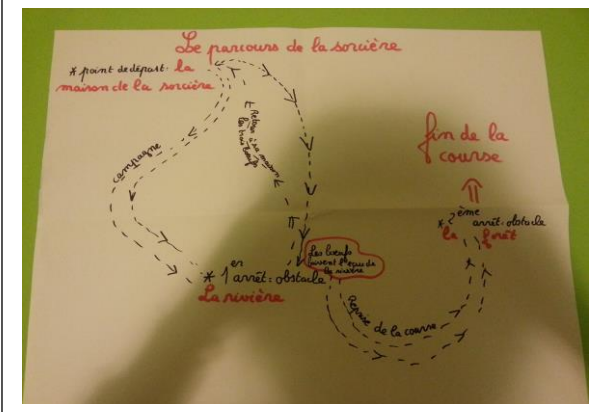 Le parcours de la sorcière
* point de départ : la
maison de la sorcière
campagne
Retour à la maison
fin de la
course
* 2ème
arrêt : obstacle
la forêt
Les bœufs
boivent l'eau de
la rivière
* 1er
arrêt : obstacle
La rivière
Reprise de la course